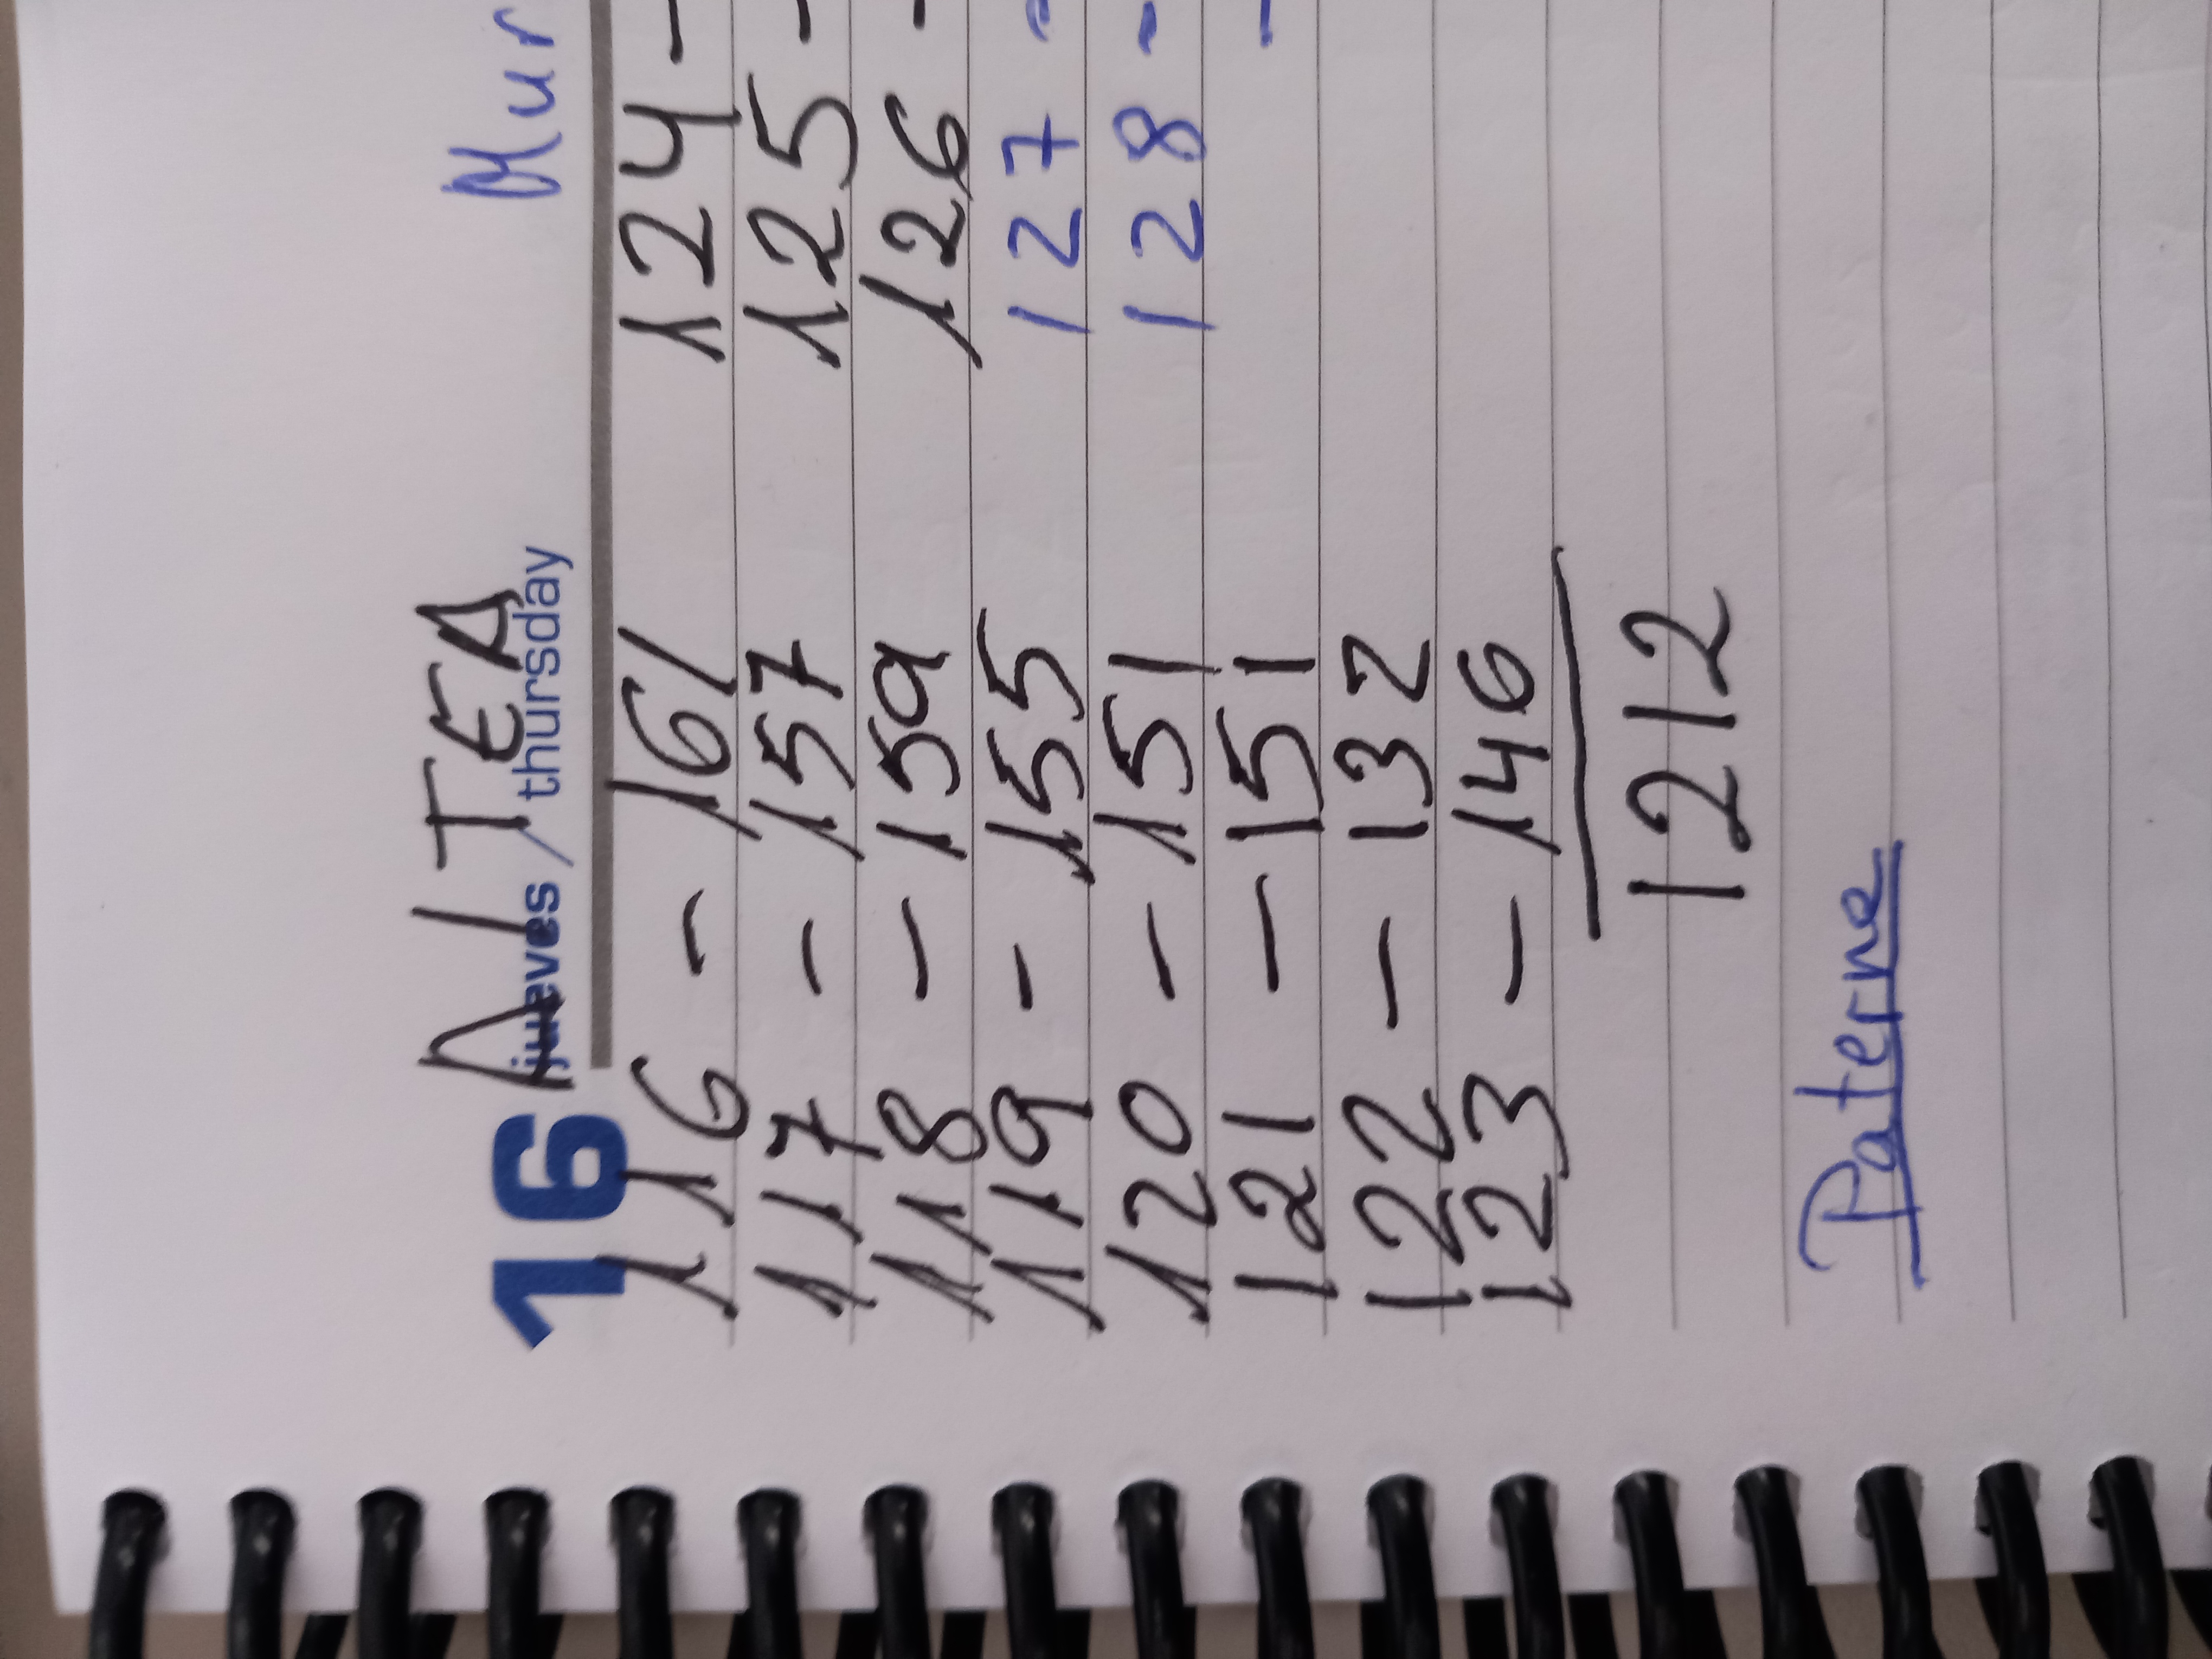 AlTEA
Mur
16 jueves / thursday
116 - 161
117 - 157
118 - 159
119 - 155
120 - 151
121 - 151
122 - 132
123 - 146
1212
Paterne
124 -
125 -
126 -
127 -
128 -
-